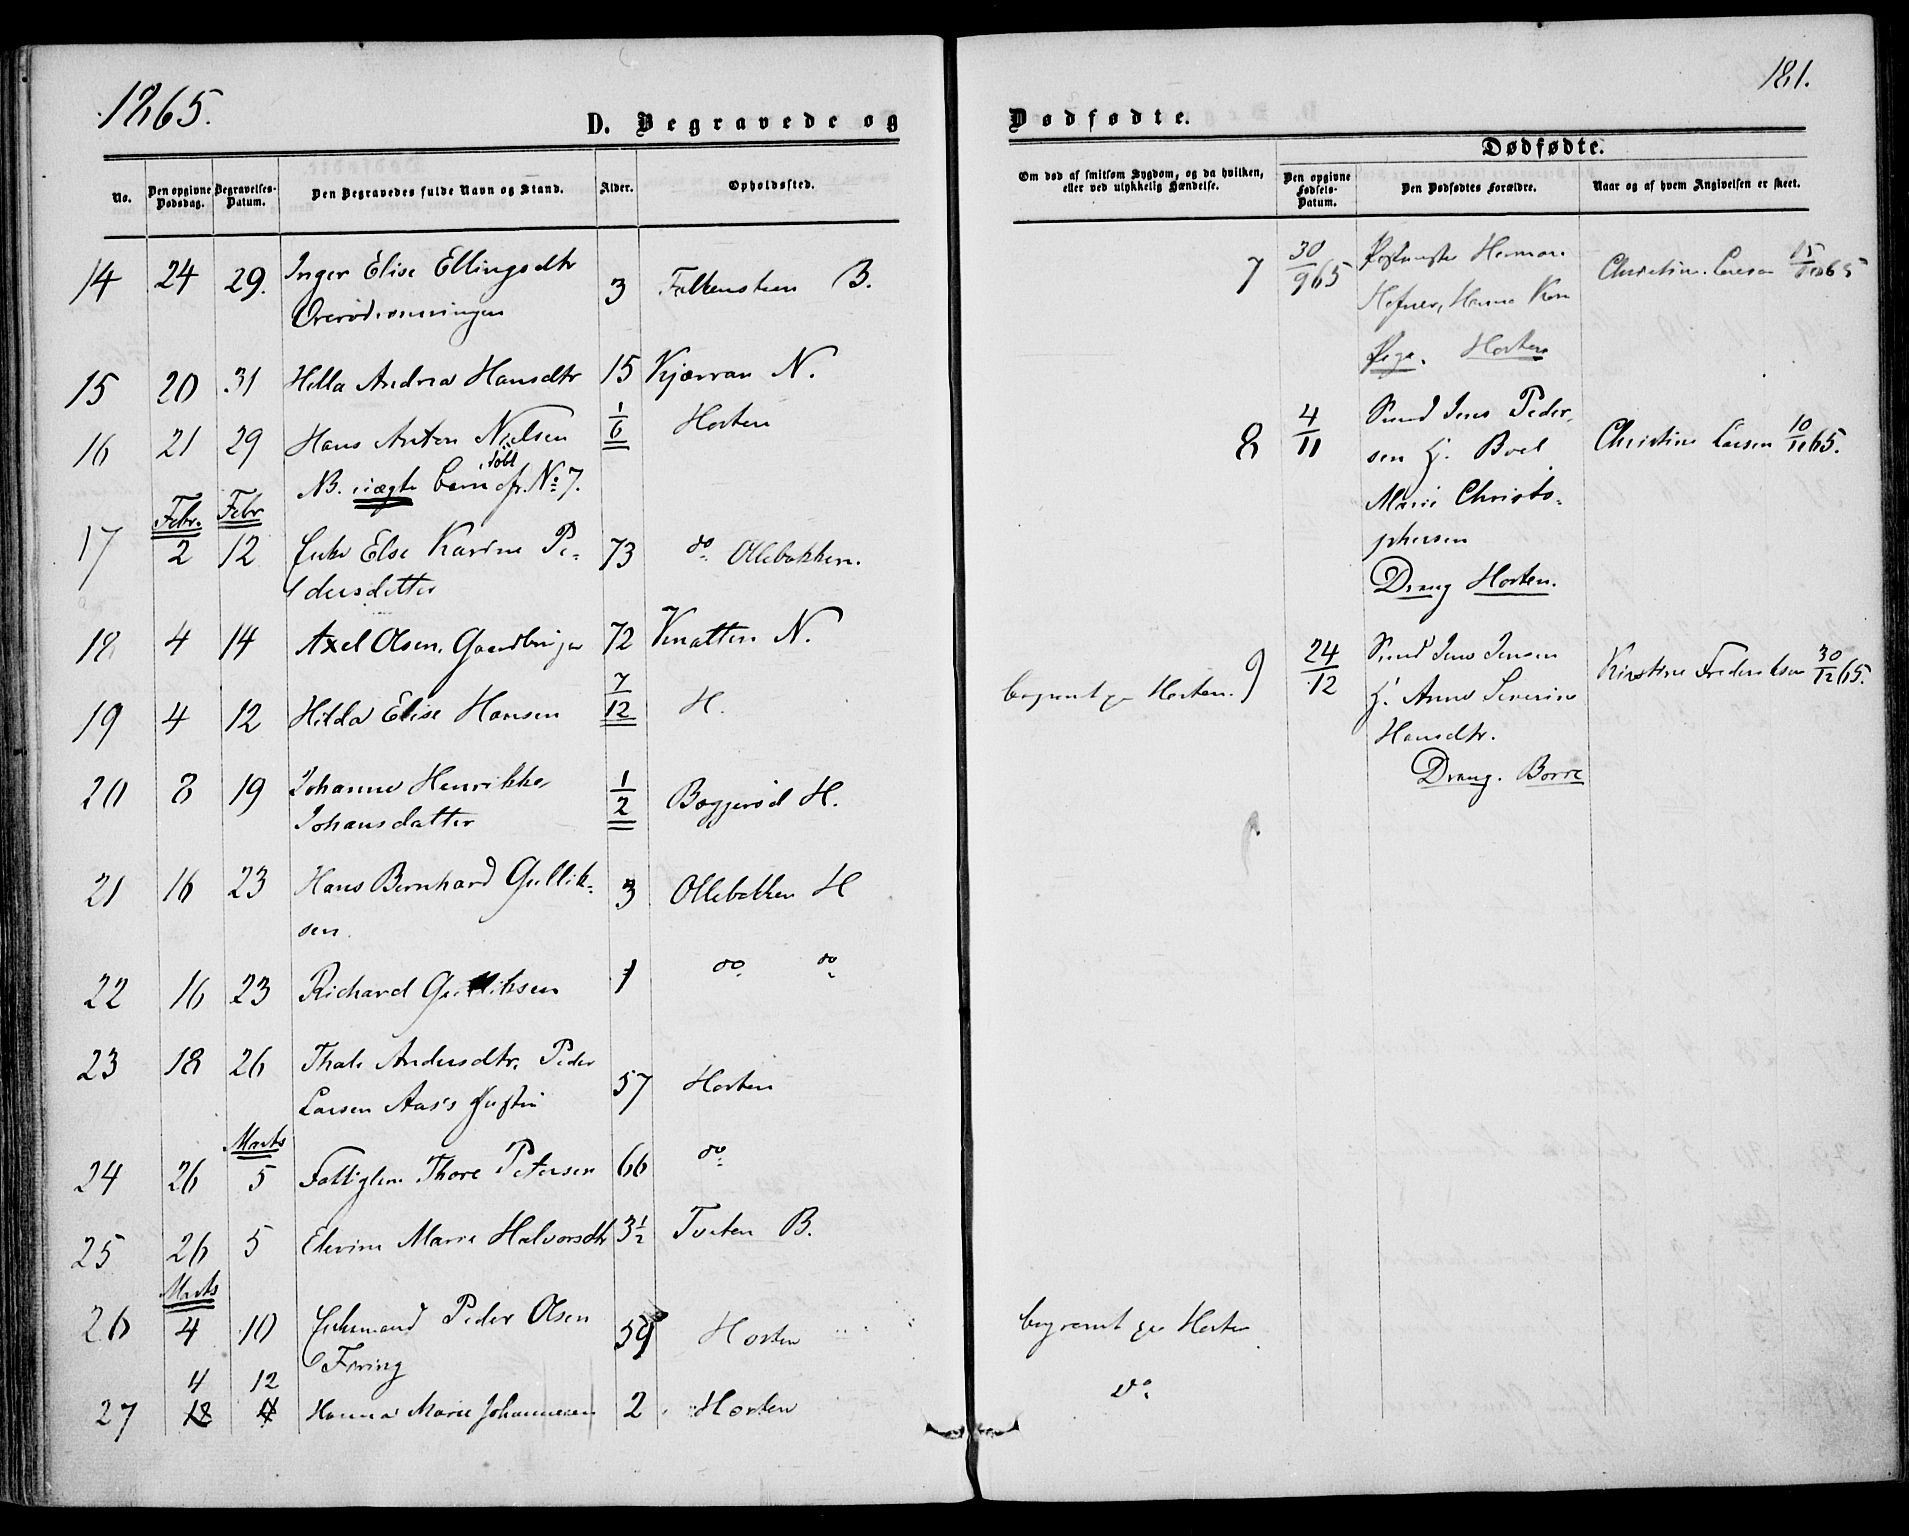 1865.
181.
D. Begravede og
Dødfødte.
No.
Den opgivne Dødsdag.
Begravelses-Datum.
Den Begravedes fulde Navn og Stand.
Alder.
Opholdssted.
Om død af smitsom Sygdom, og da hvilken, eller ved ulykkelig Hændelse.
Dødfødte.
Den opgivne Fødsels-Datum.
Den Dødfødtes Forældre.
Naar og af hvem Angivelsen er skeet.
14 24 29. Inger Elise Ellingsdtr 3 Falkensteen B.
15 20 31 Hella Andrea Hansdtr 15 Kjærran N.
16 21 29 Hans Anton Nielsen 1/6 Horten
NB. uægte Barn døbt cfr. No 7.
Febr. Febr
17 2 12 Enke Else Karine Pe- 73 do. Ollebakken.
dersdatter
18 4 14 Axel Olsen, Gaardbruger 72 N.
19 4 12 Hilda Elise Hansen 7/12 H.
20 8 19 Johanne Henrikke 1/2 Boggerød H.
Johansdatter
21 16 23 Hans Bernhard Gullik- 3 Ollebakken H
sen
22 16 23 Richard Gulliksen 1 do. do.
23 18 26 Thale Andersdtr. Peder 57 Horten
Larsen Aas's Hustru
Marts
24 26 5 Fattiglem Thore Petersen 66 do.
25 26 5 Elevine Marie Halvorsdtr 3 1/2 Tveten B.
Marts
26 4 10 Enkemand Peder Olsen 59 Horten
Føring
4 12
27 18 Hanna Marie Johannesen 2 Horten
7 30/9 65 Herman
Hefner, Hanne
Pige. Horten
Christine Larsen 15/10 65
8 4/11 Smed Jens Peder-
sen H. Boel
Marie Christo-
phersen
Dreng Horten.
Christine Larsen 10/11 65.
begravet paa Horten.
9 24/12 Smed Jens Jensen
H. Anne Severine
Hansdtr.
Dreng. Borre
Kirstine Frederiksen 30/12 65.
begravet paa Horten
do